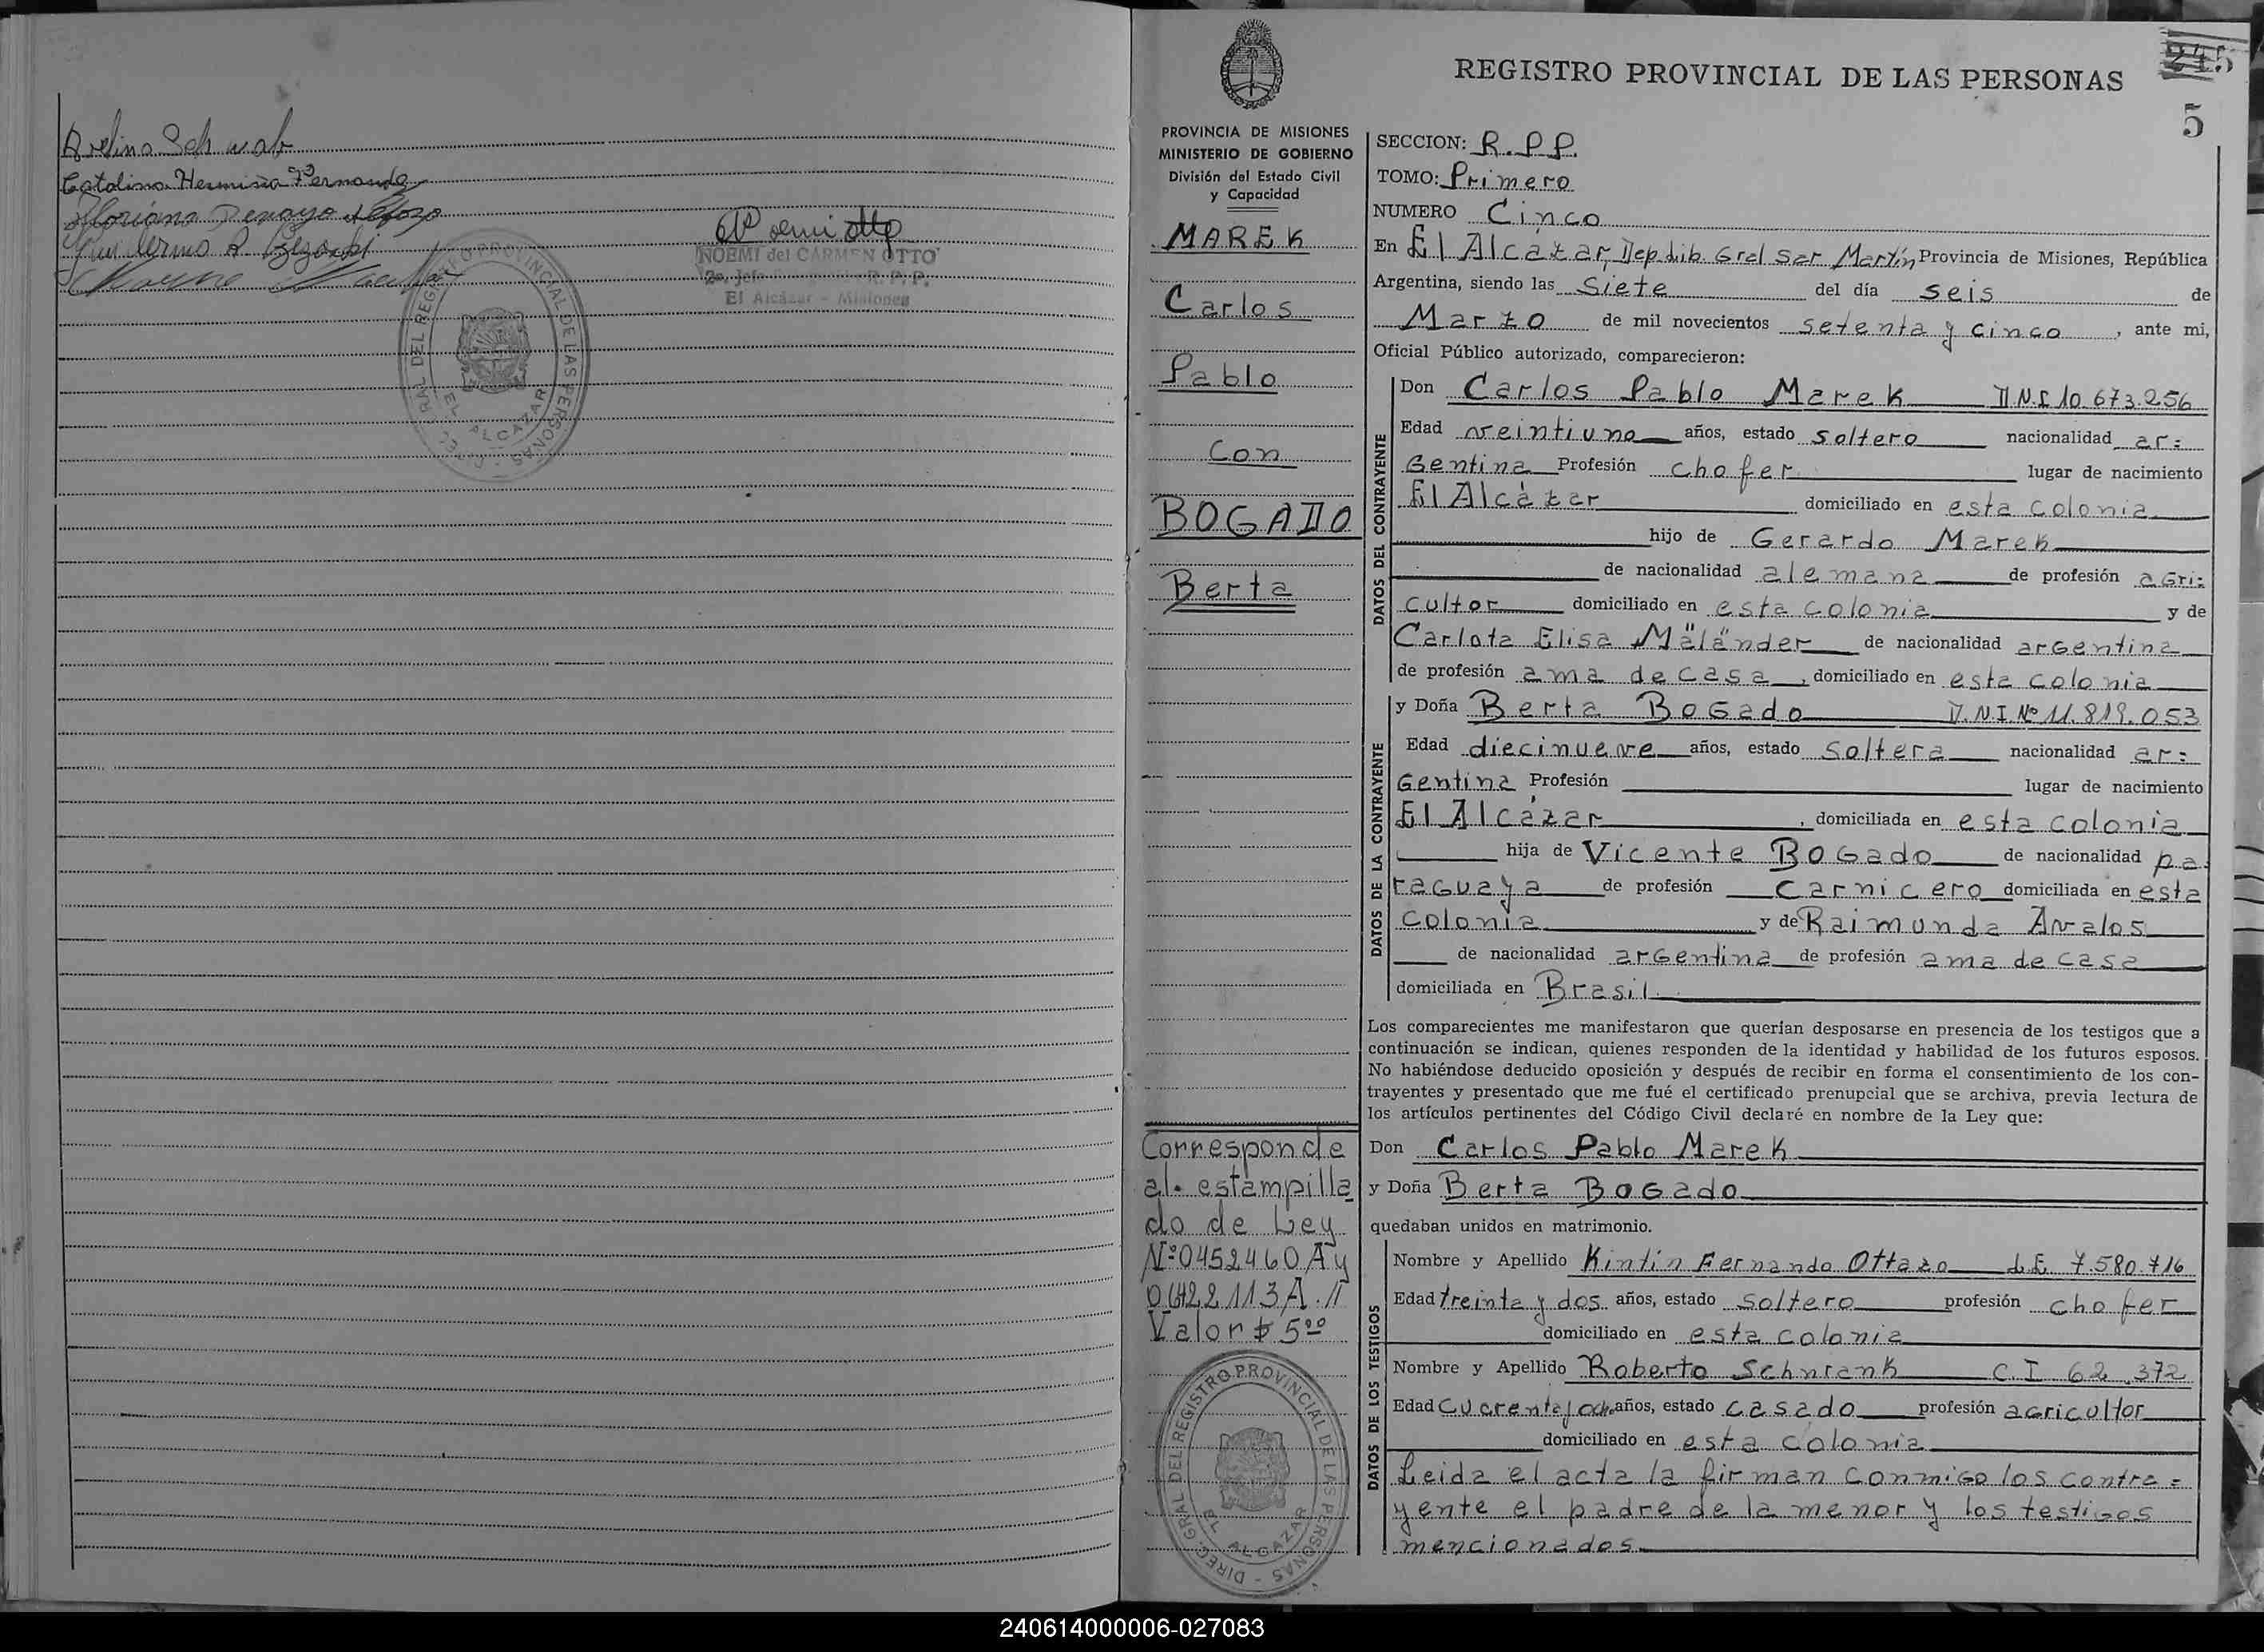 Avelino Schwab
Catalina Herminia Fernandez
Guillermo R.
NOEMI del CARMEN OTTO
2o. Jefe R. P. P.
El Alcázar - Misiones
DIREC. GRAL DEL REGISTRO PROVINCIAL DE LAS PERSONAS
EL ALCAZAR
245
REGISTRO PROVINCIAL DE LAS PERSONAS
5
PROVINCIA DE MISIONES
MINISTERIO DE GOBIERNO
División del Estado Civil
y Capacidad
MAREK
Carlos
Pablo
Con
BOGADO
Berta
Corresponde
al estampilla
do de Ley
Nº 0452460 A y
0422113 A.
Valor $ 500
DIREC. GRAL DEL REGISTRO PROVINCIAL DE LAS PERSONAS
EL ALCAZAR
SECCION: R.P.P.
TOMO: Primero
NUMERO Cinco
En El Alcazar, Dep. Lib. Gral San Martín Provincia de Misiones, República
Argentina, siendo las Siete del día seis de
Marzo de mil novecientos setenta y cinco, ante mi,
Oficial Público autorizado, comparecieron:
DATOS DEL CONTRAYENTE
Don Carlos Pablo Marek D.N.I. 10.673.256
Edad veintiuno años, estado soltero nacionalidad ar=
gentina Profesión chofer lugar de nacimiento
El Alcázar domiciliado en esta colonia
hijo de Gerardo Marek
de nacionalidad alemana de profesión agri=
cultor domiciliado en esta colonia y de
Carlota Elisa Mäländer de nacionalidad argentina
de profesión ama de casa, domiciliado en esta colonia
DATOS DE LA CONTRAYENTE
y Doña Berta Bogado D.N.I. Nº 11.819.053
Edad diecinueve años, estado soltera nacionalidad ar=
gentina Profesión lugar de nacimiento
El Alcázar, domiciliada en esta colonia
hija de Vicente Bogado de nacionalidad pa
raguaya de profesión carnicero domiciliada en esta
colonia y de Raimunda Avalos
de nacionalidad argentina de profesión ama de casa
domiciliada en Brasil.
Los comparecientes me manifestaron que querían desposarse en presencia de los testigos que a
continuación se indican, quienes responden de la identidad y habilidad de los futuros esposos.
No habiéndose deducido oposición y después de recibir en forma el consentimiento de los con-
trayentes y presentado que me fué el certificado prenupcial que se archiva, previa lectura de
los artículos pertinentes del Código Civil declaré en nombre de la Ley que:
Don Carlos Pablo Marek
y Doña Berta Bogado
quedaban unidos en matrimonio.
DATOS DE LOS TESTIGOS
Nombre y Apellido Kintín Fernando Ottazo L.E. 7.580.716
Edad treinta y dos años, estado soltero profesión chofer
domiciliado en esta colonia
Nombre y Apellido Roberto Schnrank C.I. 62.372
Edad cuarenta y ocho años, estado casado profesión agricultor
domiciliado en esta colonia
Leida el acta la firman conmigo los contra=
yente el padre de la menor y los testigos
mencionados.
240614000006-027083